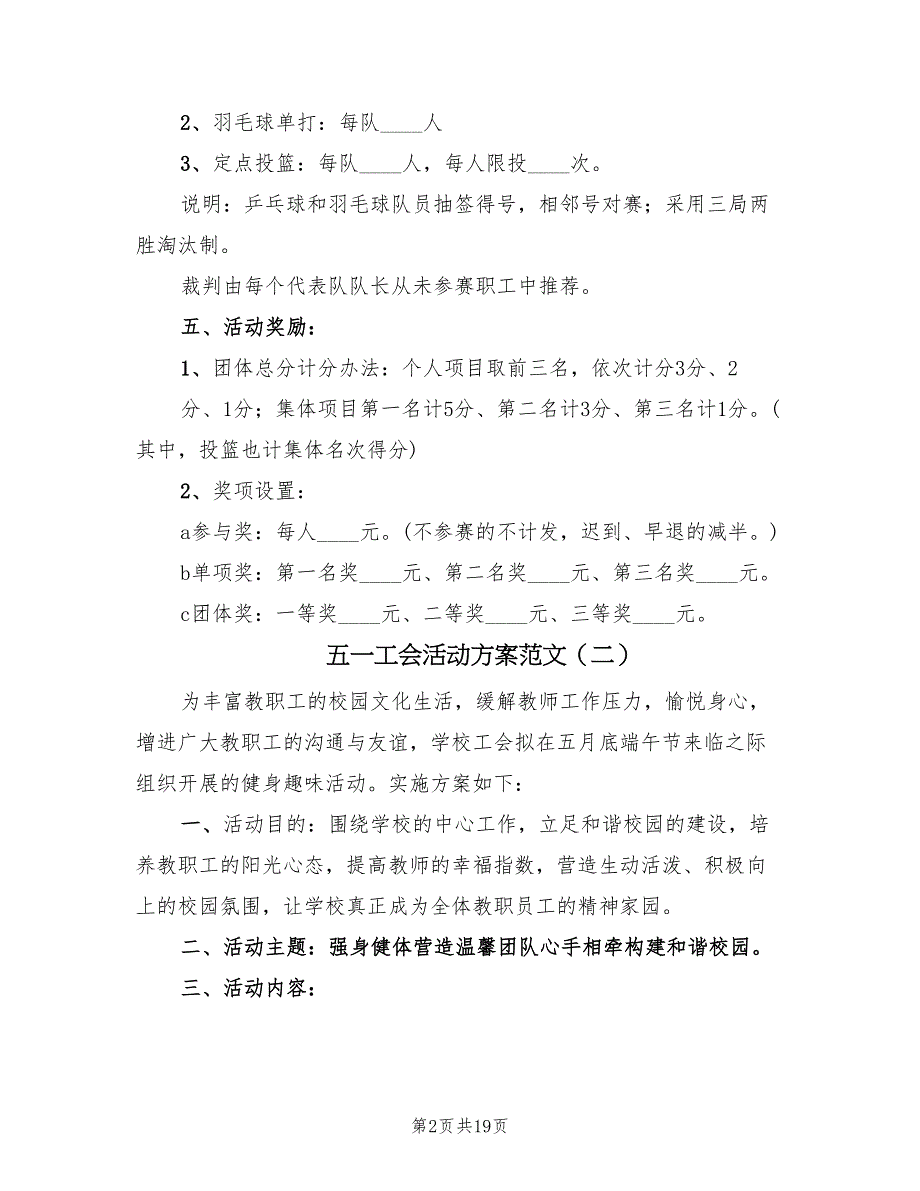 2、羽毛球单打：每队____人
3、定点投篮：每队____人，每人限投____次。
说明：乒乓球和羽毛球队员抽签得号，相邻号对赛；采用三局两
胜淘汰制。
裁判由每个代表队队长从未参赛职工中推荐。
五、活动奖励：
1、团体总分计分办法：个人项目取前三名，依次计分3分、2
分、1分；集体项目第一名计5分、第二名计3分、第三名计1分。(
其中，投篮也计集体名次得分)
2、奖项设置：
a参与奖：每人____元。(不参赛的不计发，迟到、早退的减半。)
b单项奖：第一名奖____元、第二名奖____元、第三名奖____元。
c团体奖：一等奖____元、二等奖____元、三等奖____元。
五一工会活动方案范文（二）
为丰富教职工的校园文化生活，缓解教师工作压力，愉悦身心，
增进广大教职工的沟通与友谊，学校工会拟在五月底端午节来临之际
组织开展的健身趣味活动。实施方案如下：
一、活动目的：围绕学校的中心工作，立足和谐校园的建设，培
养教职工的阳光心态，提高教师的幸福指数，营造生动活泼、积极向
上的校园氛围，让学校真正成为全体教职员工的精神家园。
二、活动主题：强身健体营造温馨团队心手相牵构建和谐校园。
三、活动内容：
第2页共19页